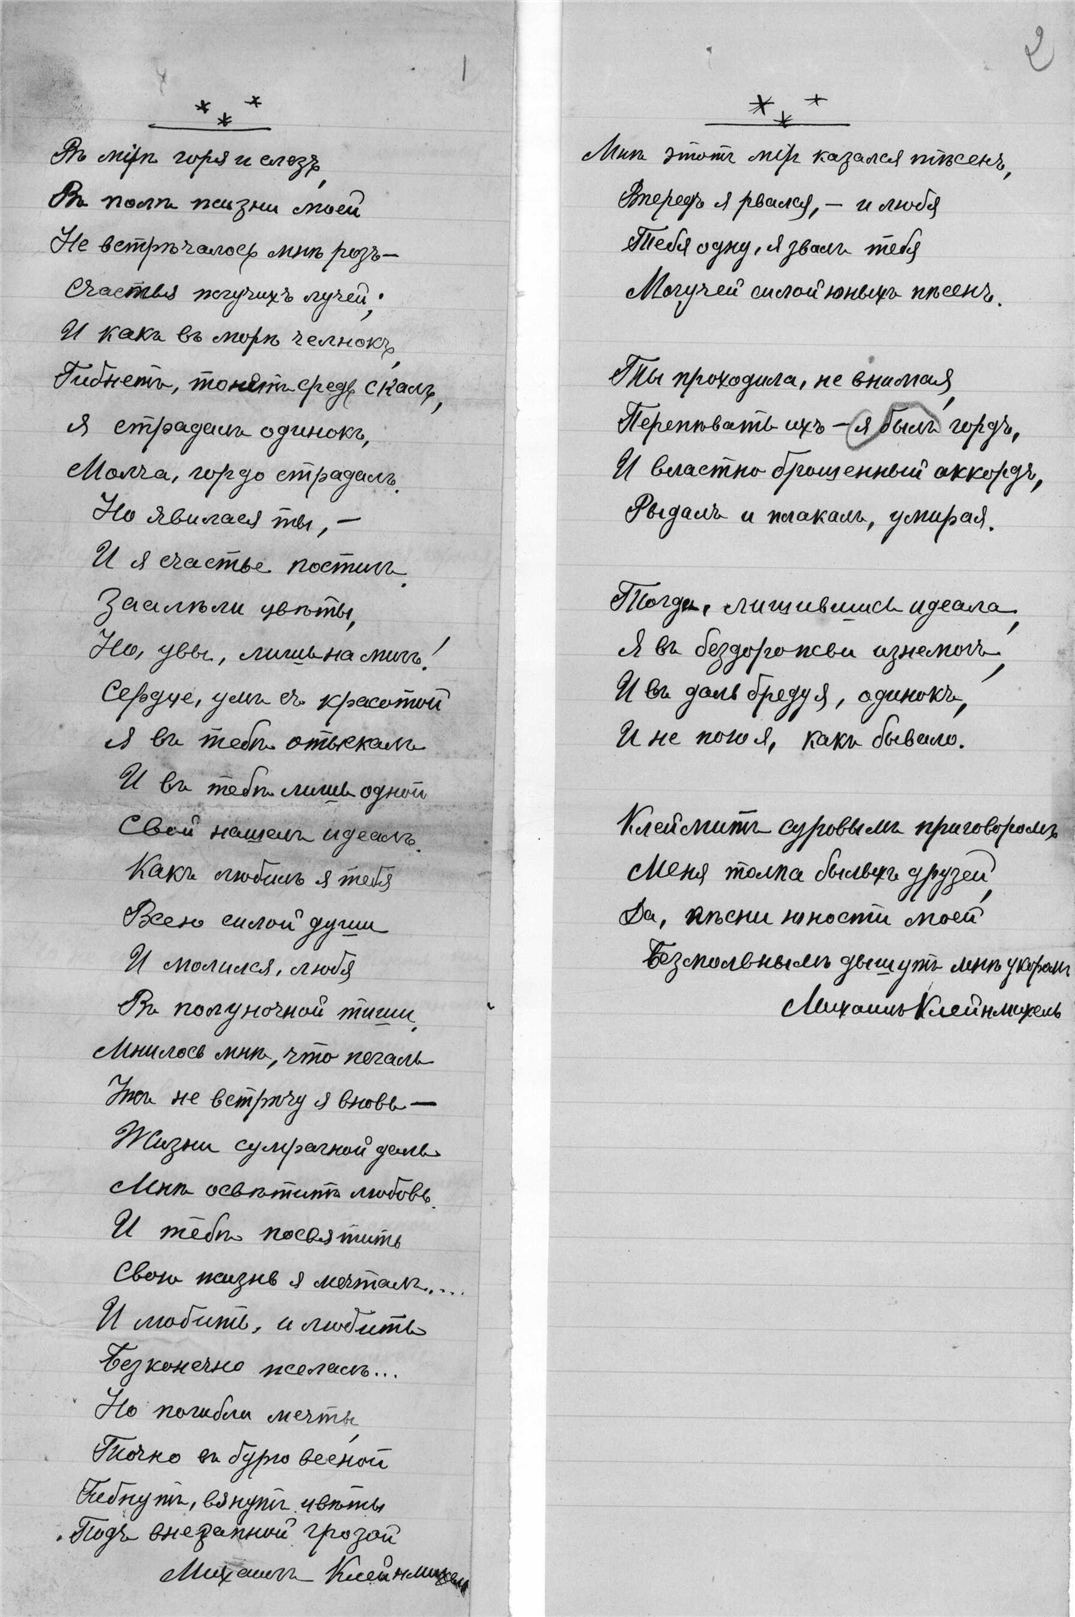 1
* * *
Въ мірѣ горя и слезъ,
Въ полѣ жизни моей
Не встрѣчалось мнѣ розъ —
Счастья жгучихъ лучей;
И какъ въ морѣ челнокъ,
Гибнетъ, тонетъ средь скалъ,
Я страдалъ одинокъ,
Молча, гордо страдалъ.
Но явилася ты, —
И я счастье постигъ.
Заалѣли цвѣты,
Но, увы, лишь на мигъ!
Сердце, умъ съ красотой
Я въ тебѣ отыскалъ
И въ тебѣ лишь одной
Свой нашелъ идеалъ.
Какъ любилъ я тебя
Всею силой души
И молился, любя
Въ полуночной тиши.
Мнилось мнѣ, что печаль
Ужъ не встрѣчу я вновь —
Жизни сумрачной даль
Мнѣ освѣтитъ любовь.
И тебѣ посвятить
Свою жизнь я мечталъ....
И любить, и любить
Безконечно желалъ...
Но погибли мечты,
Точно въ бурю весной
Гибнутъ, вянутъ цвѣты
Подъ внезапной грозой
Михаилъ Клейнмихель
2
* * *
Мнѣ этотъ мір казался тѣсенъ,
Впередъ я рвался, — и любя
Тебя одну, я звалъ тебя
Могучей силой юныхъ пѣсенъ.
Ты проходила, не внимая,
Перепѣвать ихъ — я былъ гордъ,
И властно брошенный аккордъ,
Рыдалъ и плакалъ, умирая.
Тогда, лишившись идеала,
Я въ бездорожьи изнемогъ,
И въ даль бреду я, одинокъ,
И не пою я, какъ бывало.
Клеймитъ суровымъ приговоромъ
Меня толпа былыхъ друзей,
Да, пѣсни юности моей
Безмолвнымъ дышутъ мнѣ укоромъ
Михаилъ Клейнмихель